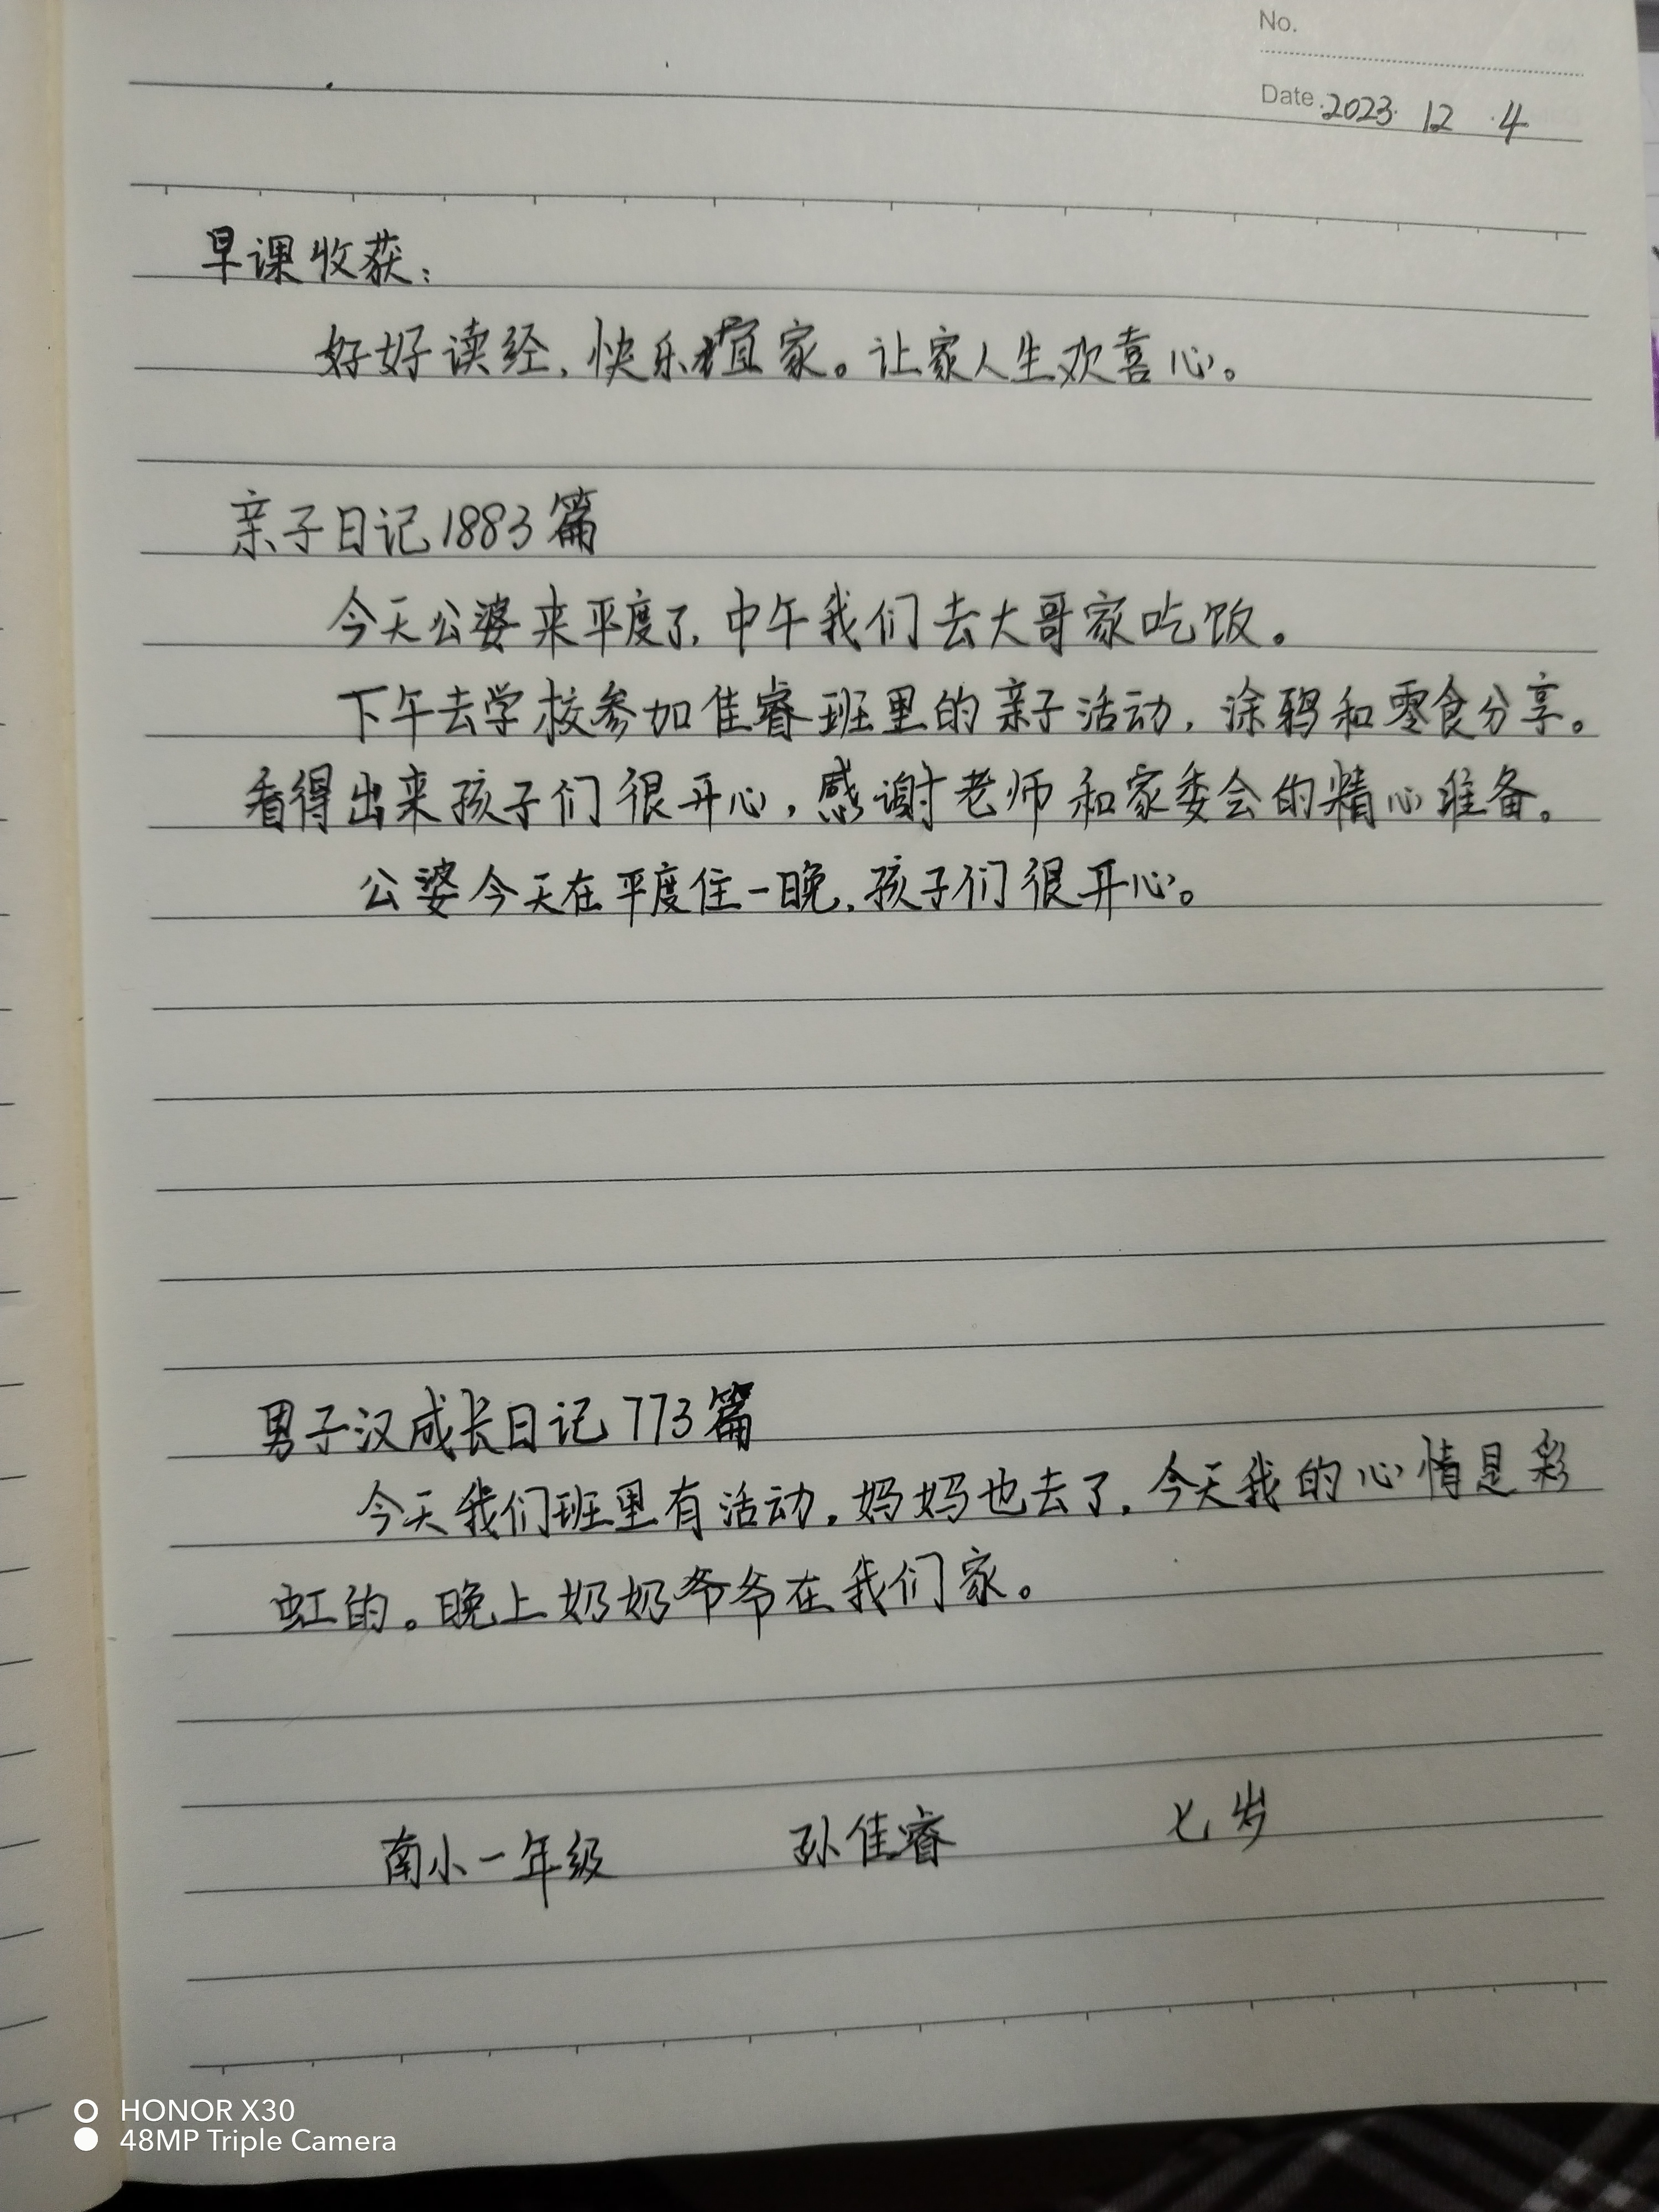 No.
Date 2023 12 4
早课收获：
好好读经，快乐宜家。让家人生欢喜心。
亲子日记1883篇
今天公婆来平度了，中午我们去大哥家吃饭。
下午去学校参加佳睿班里的亲子活动，涂鸦和零食分享。
看得出来孩子们很开心，感谢老师和家委会的精心准备。
公婆今天在平度住一晚，孩子们很开心。
男子汉成长日记773篇
今天我们班里有活动，妈妈也去了，今天我的心情是彩
虹的。晚上奶奶爷爷在我们家。
南小一年级 孙佳睿 七岁
HONOR X30
48MP Triple Camera